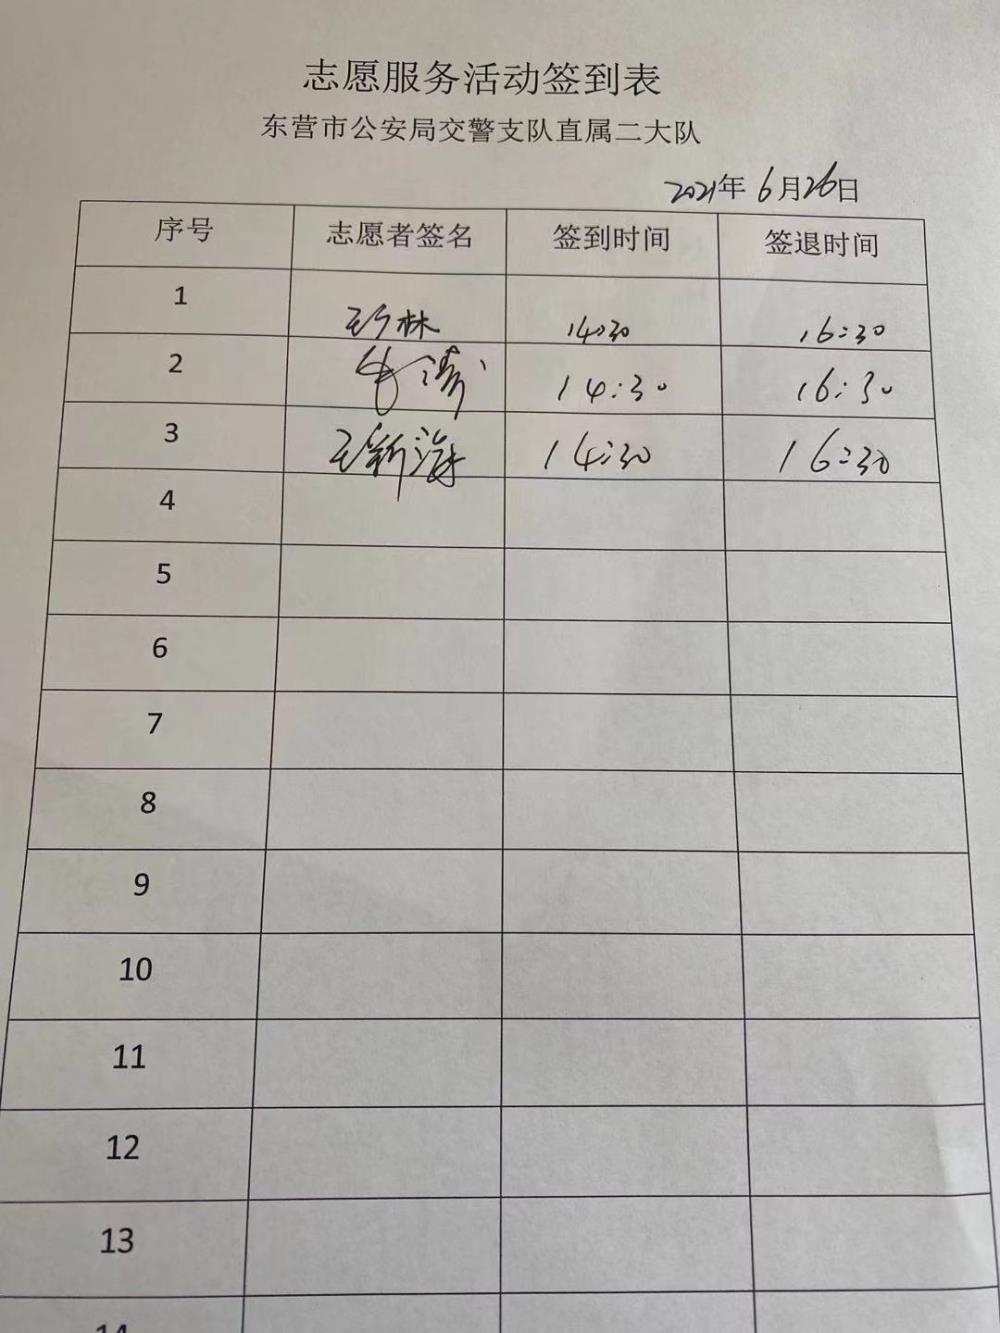 志愿服务活动签到表
东营市公安局交警支队直属二大队
2021年6月26日
序号 志愿者签名 签到时间 签退时间
1 林 14:30 16:30
2 牛涛 14:30 16:30
3 王新海 14:30 16:30
4
5
6
7
8
9
10
11
12
13
14